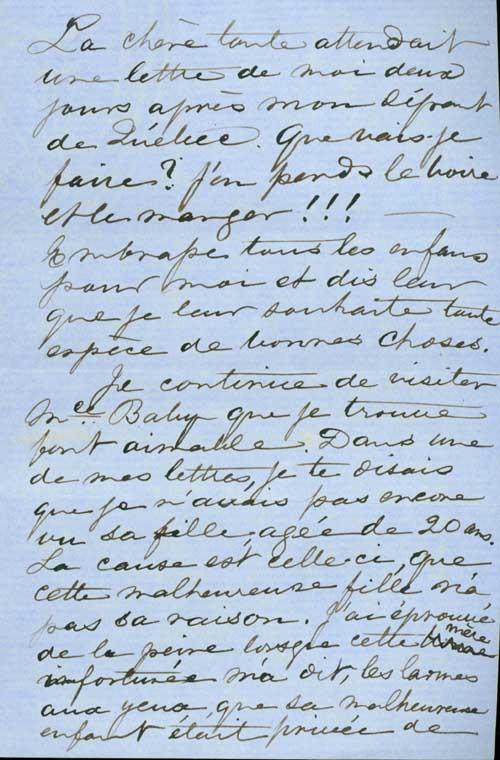 La chère tante attendait
une lettre de moi deux
jours après mon départ
de Québec. Que vais-je
faire? J'en perds le boire
et le manger!!!
Embrasse tous les enfans
pour moi et dis leur
que je leur souhaite toute
espèce de bonnes choses.
Je continue de visiter
Mce Baby que je trouve
fort aimable. Dans une
de mes lettres, je te disais
que je n'avais pas encore
vu sa fille, agée de 20 ans.
La cause est celle-ci, que
cette malheureuse fille n'a
pas sa raison. J'ai éprouvé
de la peine lorsque cette mère
infortunée m'a dit, les larmes
aux yeux, que sa malheureuse
enfant était privée de